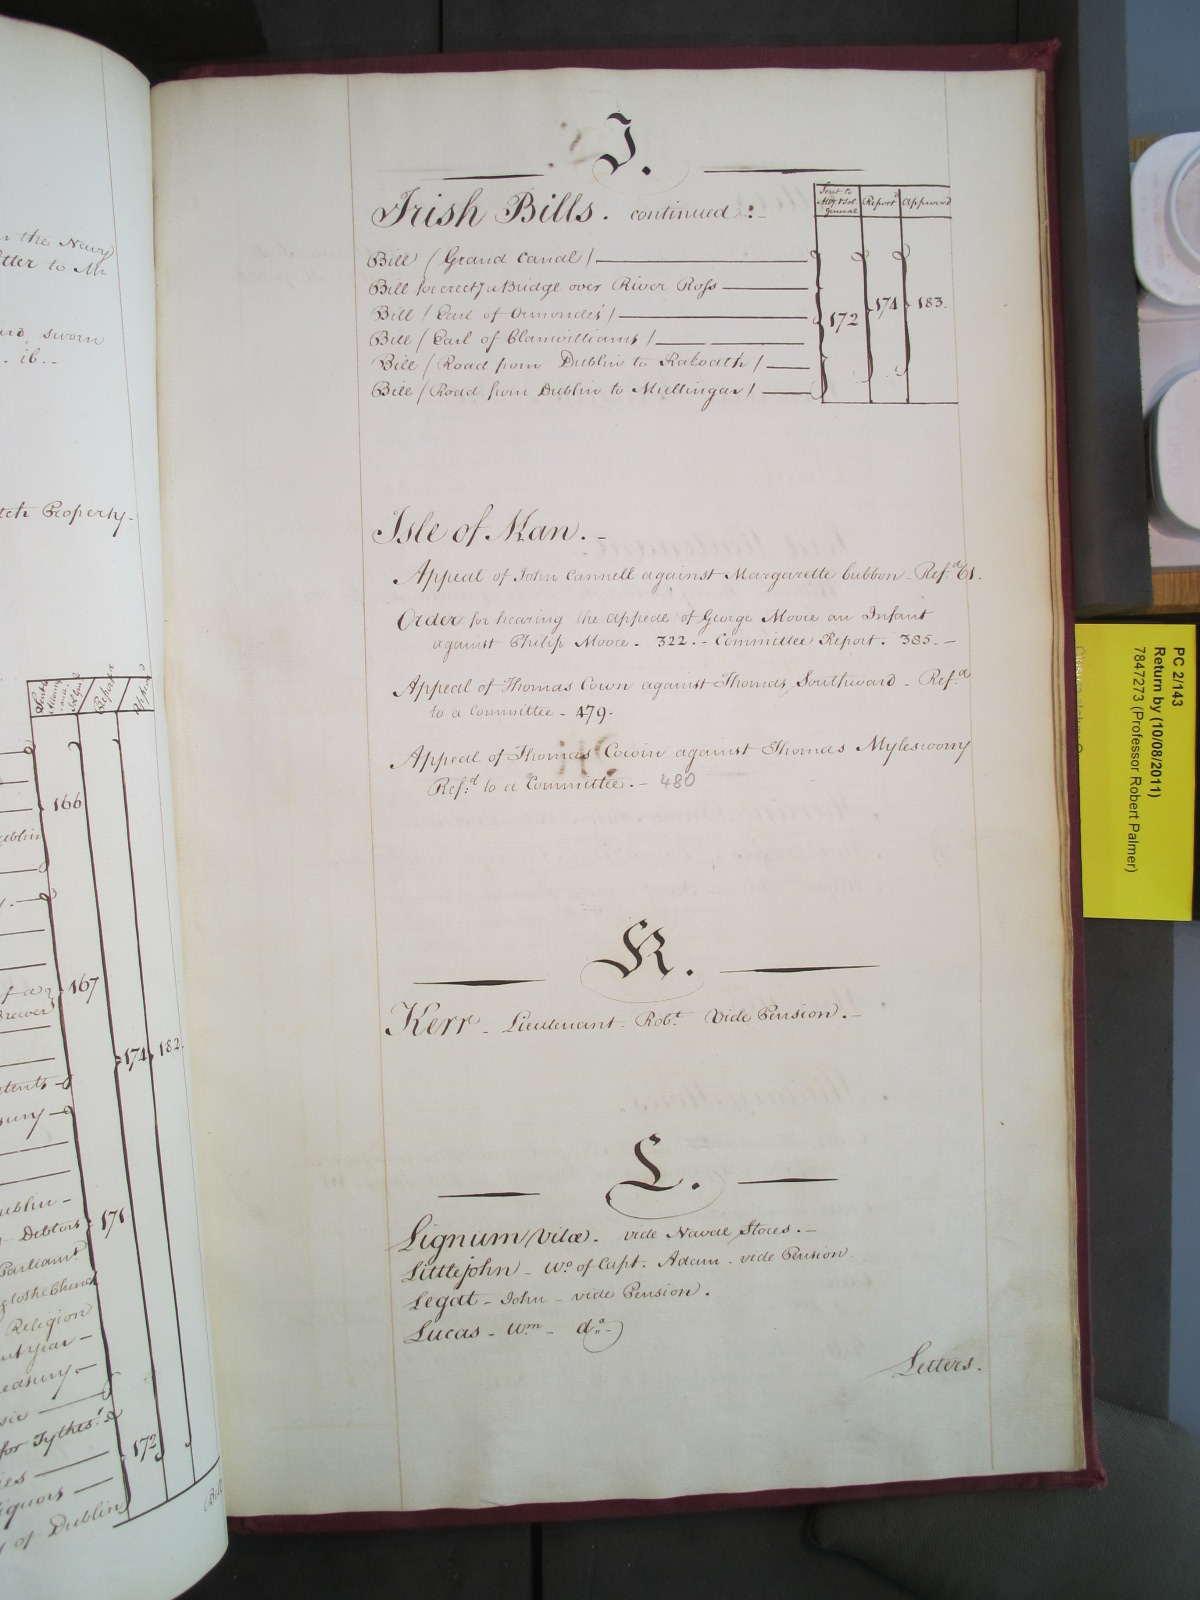 n the Navy
tter to Mr
ard, sworn
. ib. -
Property.-
166
ublin
167
Brewer
174
182.
tents
sury
ublin -
Debtors
171
Parliamt.
Religion
ent year -
easury -
for Tythes &
172
iquors
of Dublin
Bill
I.
Irish Bills. continued :-
Sent to Atty & Sol. General
Report'd
Approved
Bill (Grand Canal)
Bill for erectg a Bridge over River Ross
Bill (Earl of Ormondes)
172
174
183.
Bill (Earl of Clanwilliams)
Bill (Road from Dublin to Ratoath)
Bill (Road from Dublin to Mullingar)
Isle of Man. -
Appeal of John Cannell against Margarette Cubbon - Ref.d 61.
Order for hearing the appeal of George Moore an Infant
against Philip Moore. 322. - Committee Report. 385. -
Appeal of Thomas Cown against Thomas Southward - Ref.d
to a Committee - 479.
Appeal of Thomas Cowin against Thomas Mylesworry
Ref.d to a Committee. - 480
K.
Kerr - Lieutenant Robt. Vide Pension. -
L.
Lignum Vitæ. vide Naval Stores. -
Littlejohn - Wo. of Capt. Adam - vide Pension
Legat - John - vide Pension.
Lucas - Wm. - do.
Letters.
PC 2/143
Return by (10/08/2011)
7847273 (Professor Robert Palmer)